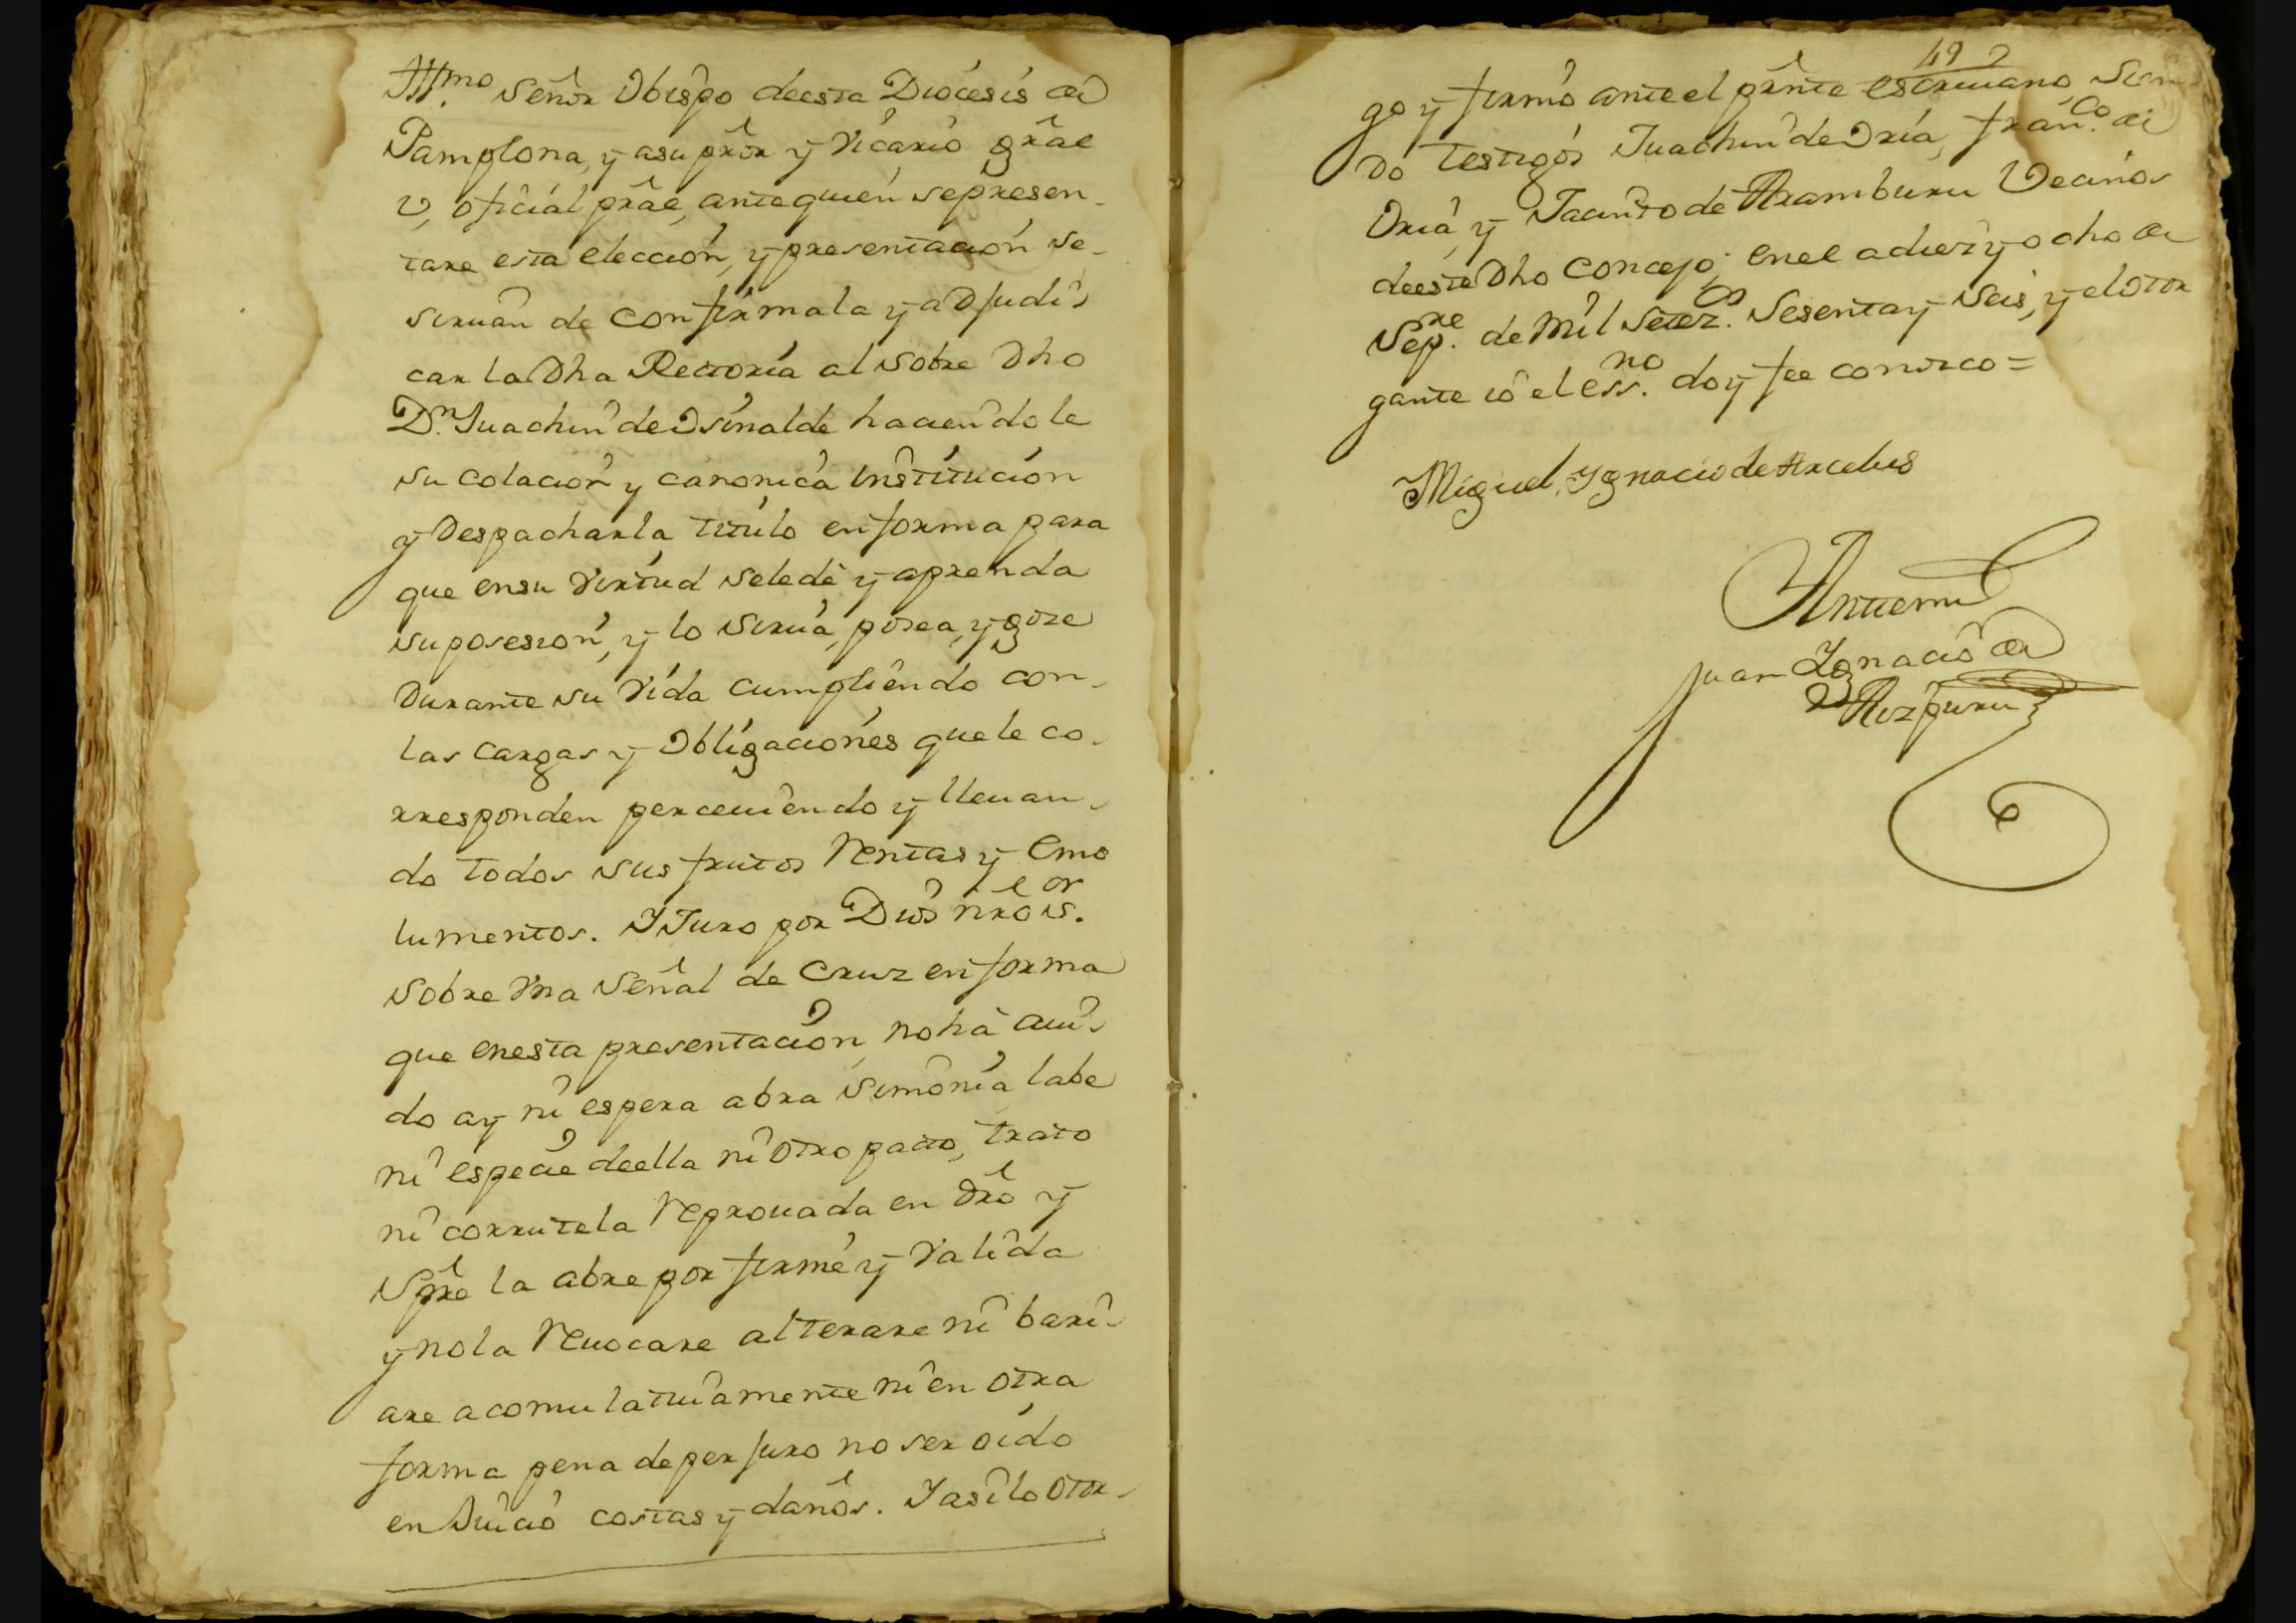 Illmo. Señor Obispo deesta Diocesis de
Pamplona, y asu prôr y Vicario grâl
U, oficial prâl, antequien sepresen-
tare esta eleccion, y presentacion se-
siruan de confirmala y adjudi-
car la Dha Rectoria al sobre Dho
Dn. Juachin de Isinalde haciendole
su colacion y canonica Institucion
y Despacharla titulo en forma para
que ensu Virtud seledè y aprenda
suposesion, y lo sirua, posea, y goze
Durante su Vida cumpliendo con-
las cargas y Obligaciones quele co-
rresponden perceuiendo y lleuan-
do todos sus frutos Rentas y Emo
lumentos. I Juro por Dios nrô sor.
sobre Vna señal de Cruz en forma
que enesta presentacion, no hà aui-
do ay ni espera abra simonia labe
ni especie deella ni otro pacto, trato
ni corrutela Reprouada en drô y
Sprê la abre por firme y Valida
y nola Reuocare alterare ni bari-
are acomulatiuamente ni en otra
forma pena de perjuro no ser oido
en Juicio costas y daños. I asi lo otor-
492
go y firmó ante el prnte escriuano, Sien
do testigos Juachin de Oria, Franco. de
Oria, y Jacinto de Aramburu Vecinos
deeste Dho Concejo; en el a diez y ocho de
Sepre. de Mil Setezos. Sesenta y Seis, y elotor
gante io el Essno. doy fee conozco =
Miguel, Ygnacio de Arcelus
Antemi
Juan Ignacio de
Aizpuru